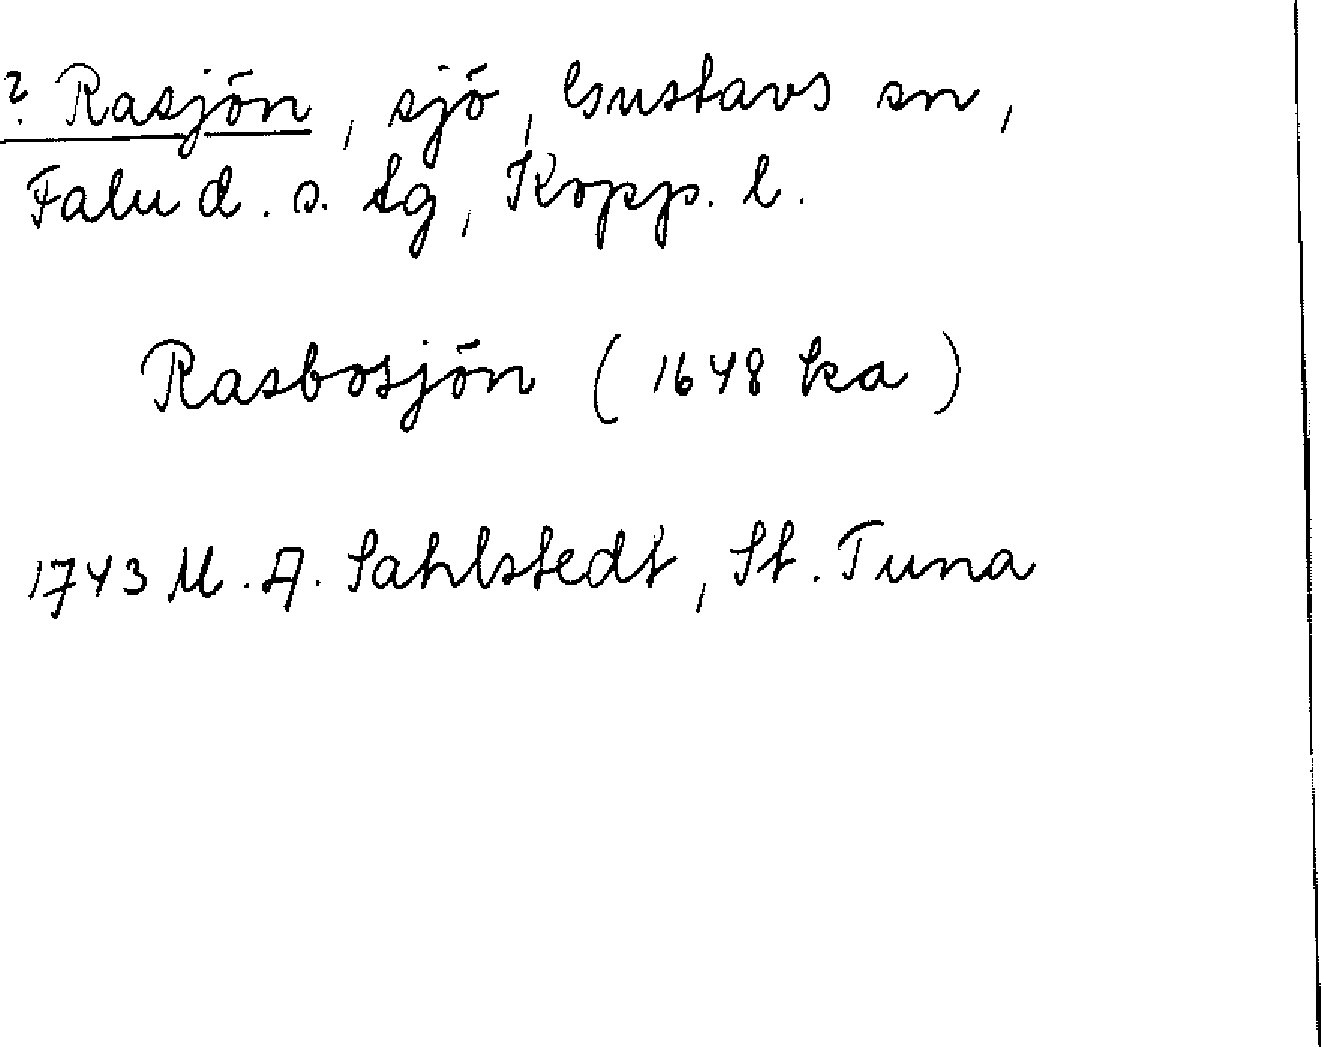 ? Rasjön, sjö, Gustavs sn,
Falu d. s. tg, Kopp. l.
Rasbosjön (1648 ka)
1743 M. A. Sahlstedt, St. Tuna